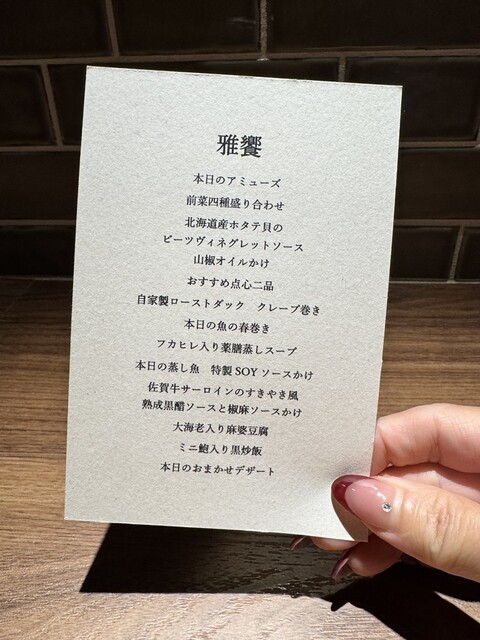 雅饗
本日のアミューズ
前菜四種盛り合わせ
北海道産ホタテ貝の
ビーツヴィネグレットソース
山椒オイルかけ
おすすめ点心二品
自家製ローストダック　クレープ巻き
本日の魚の春巻き
フカヒレ入り薬膳蒸しスープ
本日の蒸し魚　特製SOYソースかけ
佐賀牛サーロインのすきやき風
熟成黒醋ソースと椒麻ソースかけ
大海老入り麻婆豆腐
ミニ鮑入り黒炒飯
本日のおまかせデザート